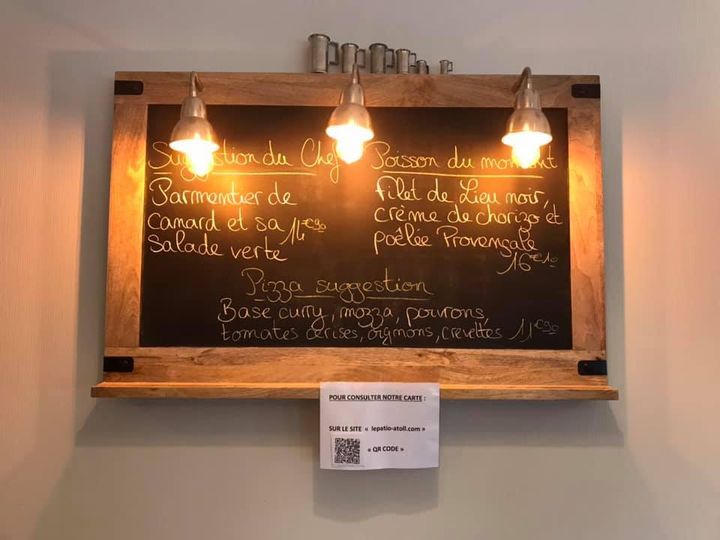 Suggestion du Chef
Parmentier de
canard et sa
salade verte
14€90
Poisson du moment
filet de Lieu noir,
crème de chorizo et
poêlée Provençale
16€10
Pizza suggestion
Base curry, mozza, poivrons,
tomates cerises, oignons, crevettes 11€90
POUR CONSULTER NOTRE CARTE :
SUR LE SITE « lepatio-atoll.com »
« QR CODE »